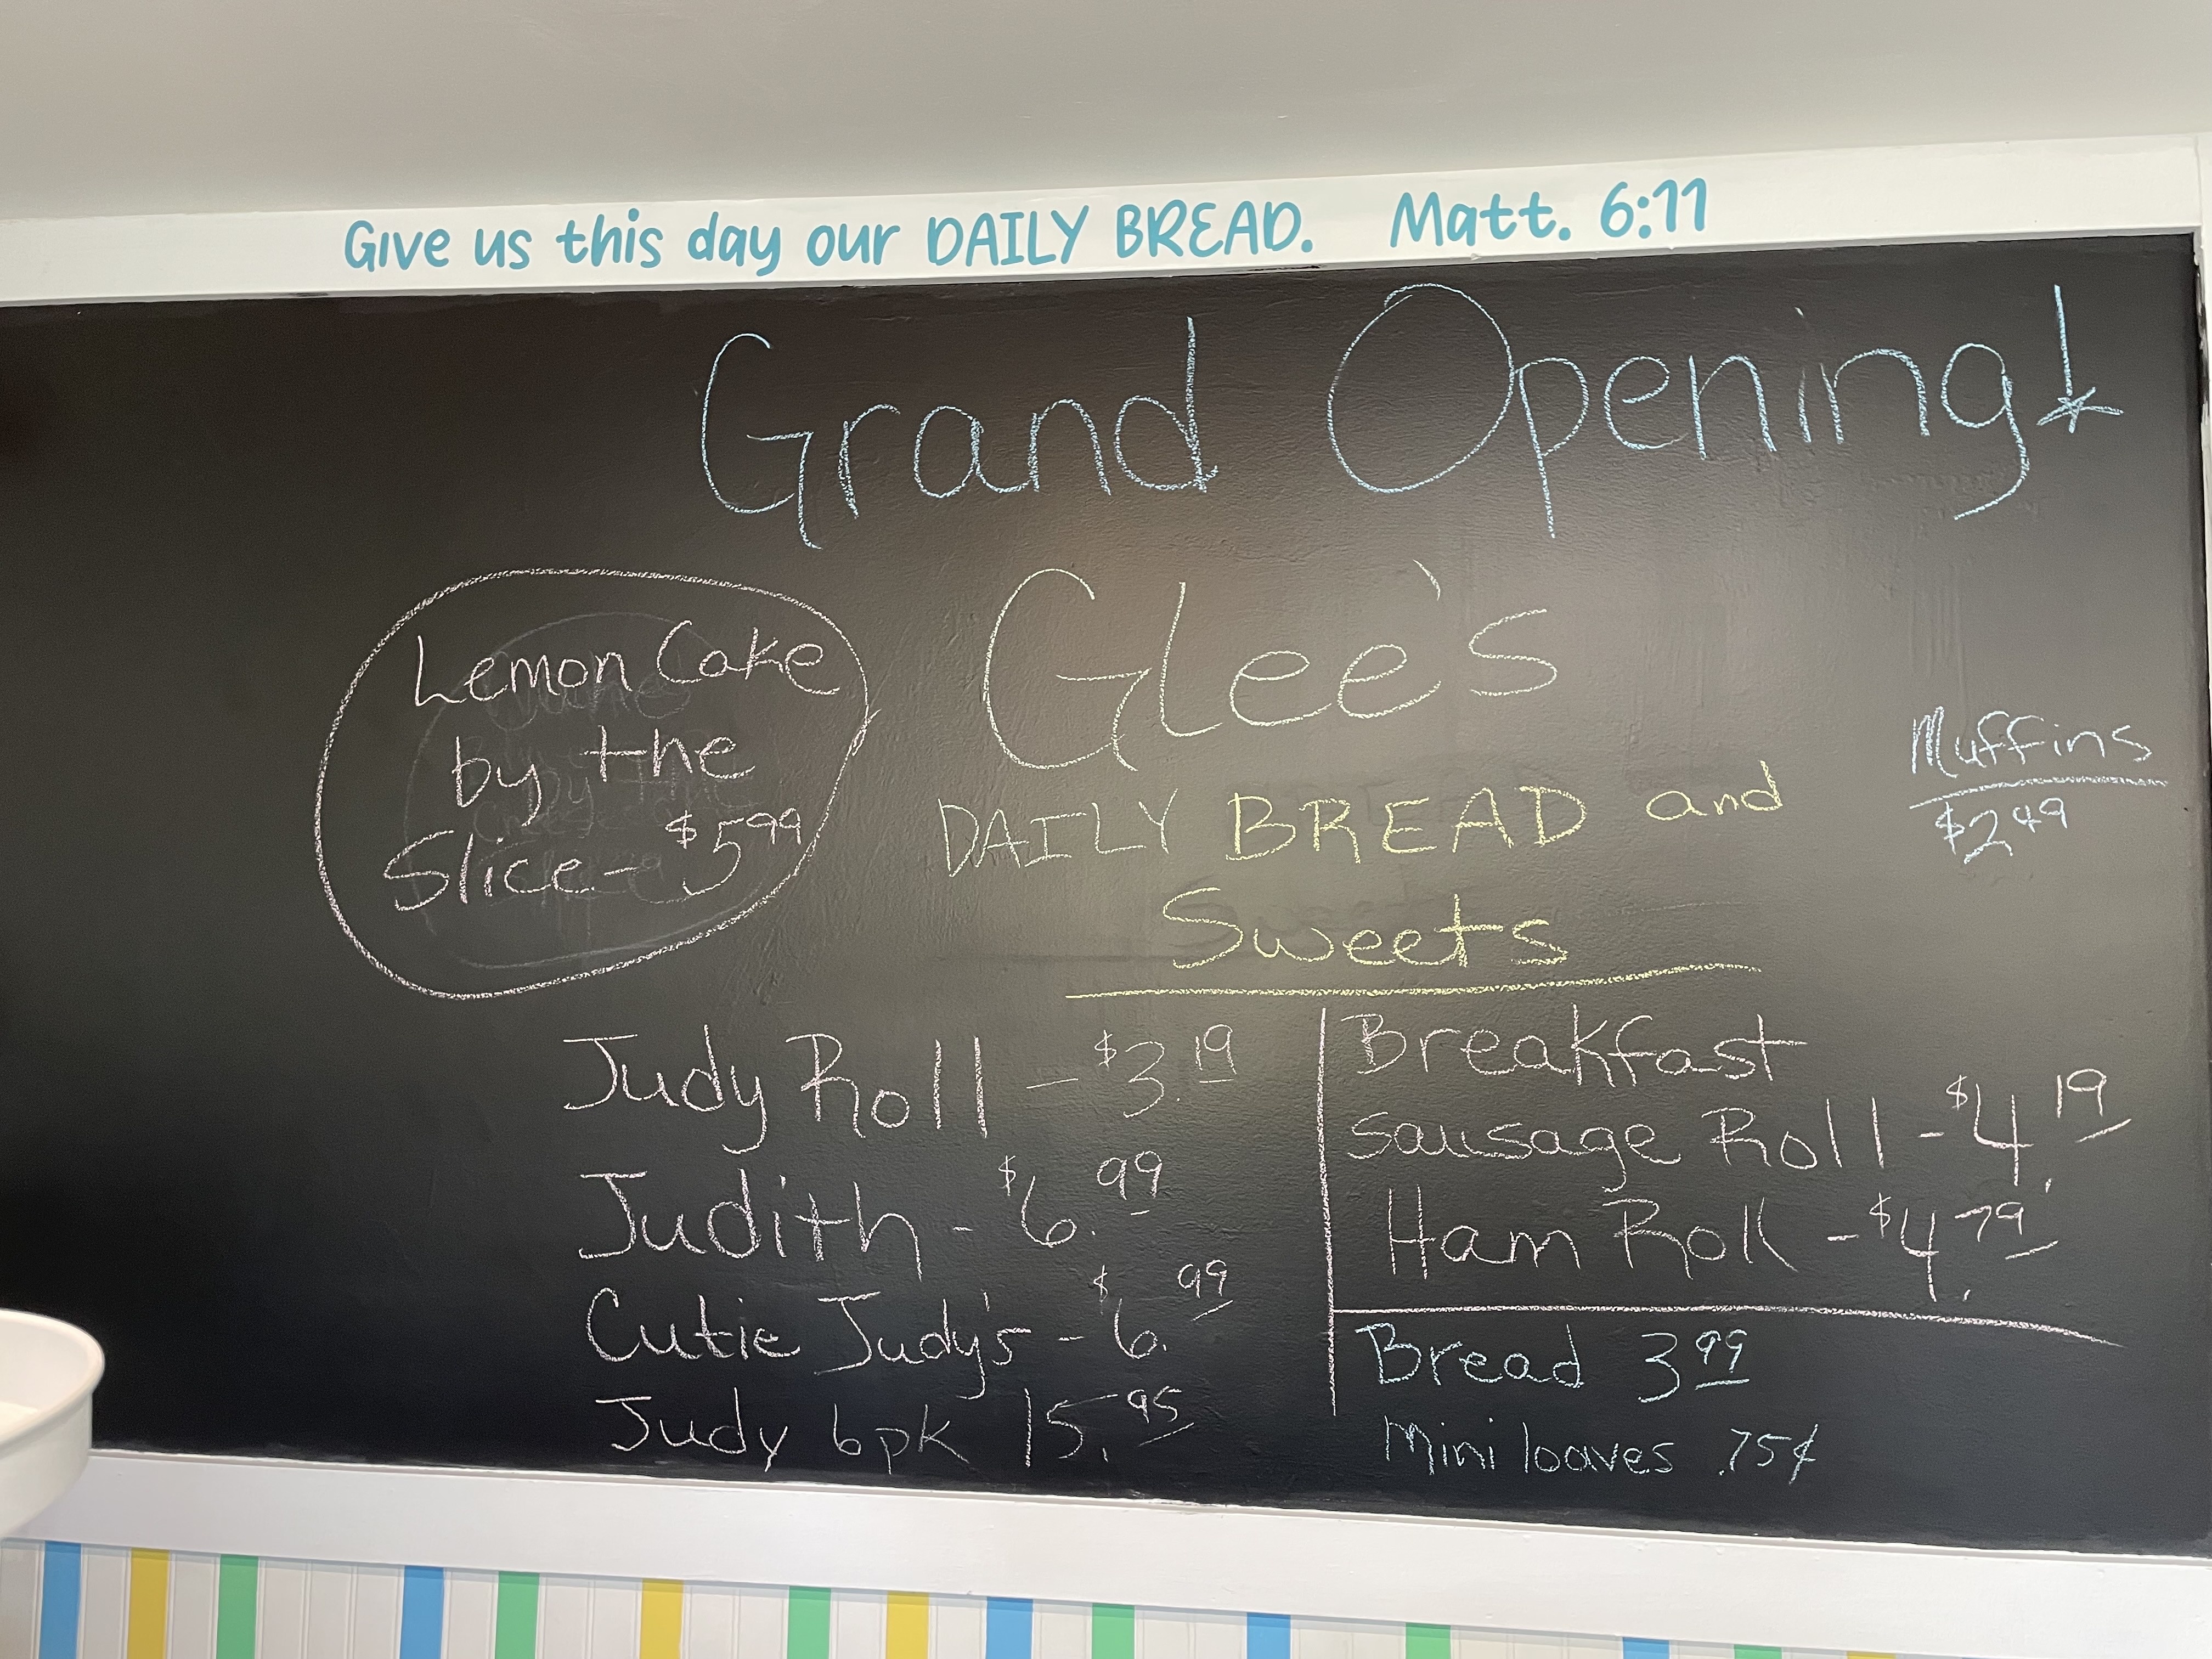 Give us this day our DAILY BREAD. Matt. 6:11
Grand Opening!
Lemon Cake
by the
Slice - $5 99
Glee's
DAILY BREAD and
Sweets
Muffins
$2 49
Judy Roll - $3.19
Judith - $6.99
Cutie Judy's - $6.99
Judy 6pk 15.95
Breakfast
Sausage Roll - $4.19
Ham Roll - $4.79
Bread 3 99
Mini loaves .75¢